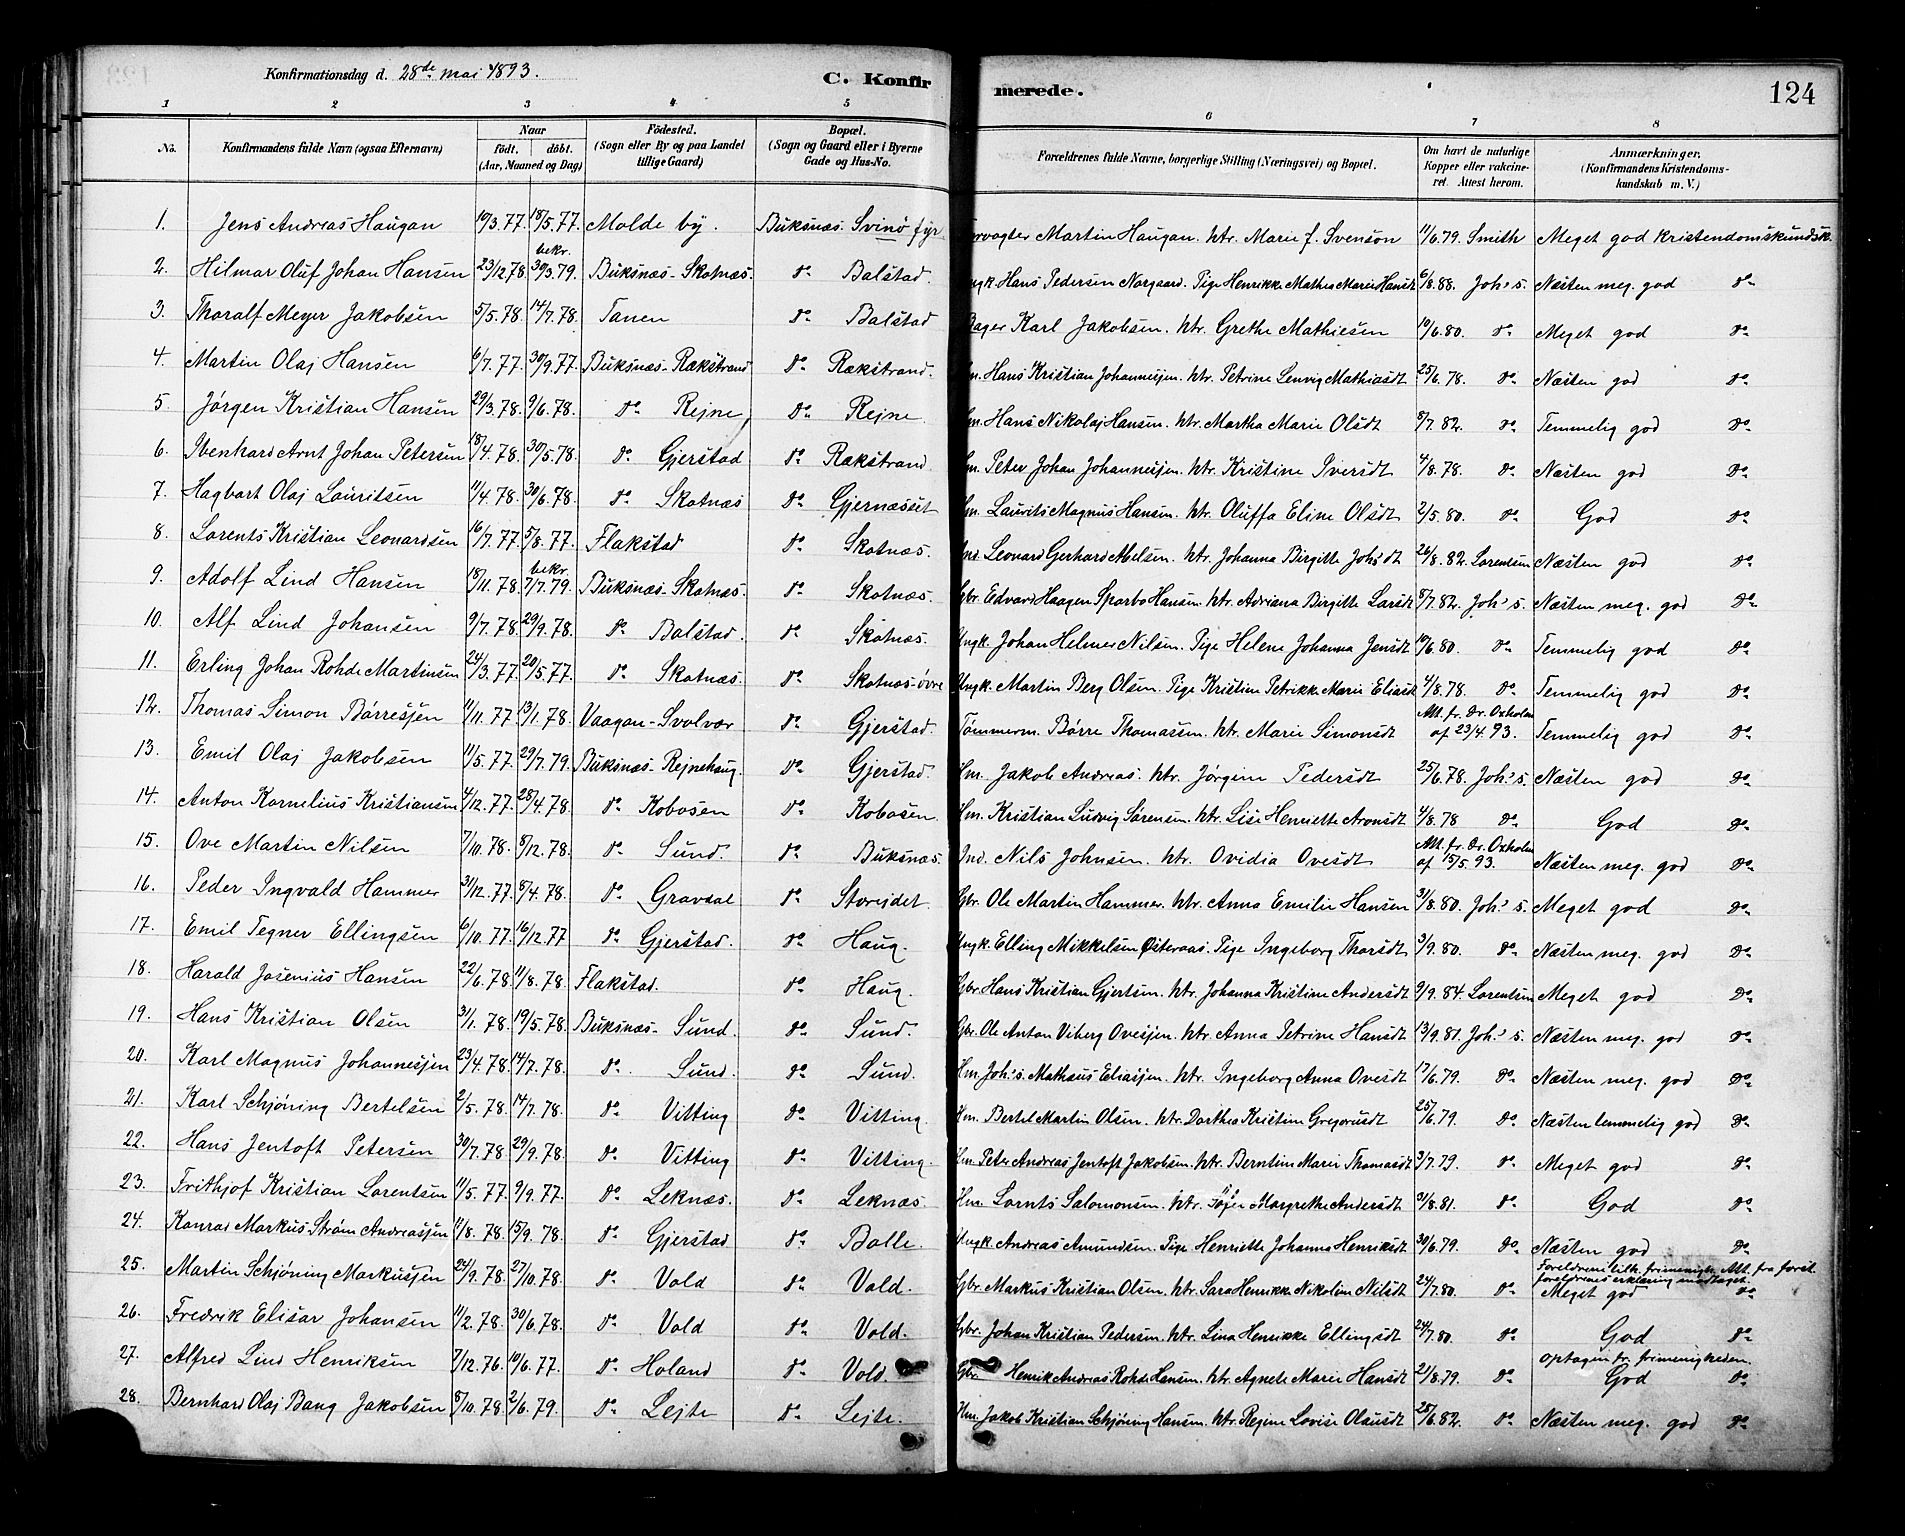 Konfirmationsdag d. 28de mai 1893.
C. Konfirmerede.
124
1 2 3 4 5 6 7 8
No. Konfirmandens fulde Navn (ogsaa Efternavn) Naar födt. döbt. (Aar, Maaned og Dag) Födested. (Sogn eller By og paa Landet tillige Gaard) Bopæl. (Sogn og Gaard eller i Byerne Gade og Hus-No. Forældrenes fulde Navne, borgerlige Stilling (Næringsvei) og Bopæl. Om havt de naturlige Kopper eller vakcineret. Attest herom. Anmærkninger. (Konfirmandens Kristendomskundskab m. V.)
1. Jens Andreas Haugan 19/3.77. 18/5.77. Molde by. Buksnæs. Svinø fyr Martin Haugan. htr. Marie f. Svenson 11/6.79. Smith Meget god Kristendomskundsk.
2. Hilmar Oluf Johan Hansen 23/12.78. bekr. 30/3.79. Buksnæs-Skotnæs. do Balstad. Hans Pedersen Norgaard. Pige Henrikke Mathea Marie Hansdt 6/8.88. Joh's. Næsten meg. god do
3. Tharalf Meyer Jakobsen 5/5.78. 14/7.78. Tanen do Balstad Bager Karl Jakobsen. htr. Grethe Mathiesen 10/6.80. do Meget god do
4. Martin Olaj Hansen 6/7.77. 30/9.77. Buksnæs-Rækstrand do Rækstrand. Hans Kristian Johannessen. htr. Petrine Lenvig Mathiasdt 25/6.78. do Næsten god do
5. Jørgen Kristian Hansen 29/3.78. 9/6.78. do Rejne do Rejne Hans Nikolaj Hansen. htr. Martha Marie Olsdt 8/7.82. do Temmelig god do
6. Ibenhard Arnt Johan Petersen 18/4.78. 30/5.78. do Gjerstad do Rækstrand Peter Johan Johannessen. htr. Kristine Iversdt 4/8.78. do Næsten god do
7. Hagbart Olaj Lauritsen 11/4.78. 30/6.78. do Skotnæs do Gjernæsset Laurits Magnus Hansen. htr. Oluffa Eline Olsdt 2/5.80. do God do
8. Lorents Kristian Leonardsen 16/7.77. 5/8.77. Flakstad do Skotnæs. Ind. Leonard Gerhard Abelsen. htr. Johanna Birgitte Joh's dt 26/8.82. Lorentsen Næsten god do
9. Adolf Lind Hansen 18/11.78. bekr. 7/7.79. Buksnæs-Skotnæs. do Skotnæs. Gbr. Edvard Haagen Sparbo Hansen. htr. Adriana Birgitte Larsdt 8/7.82. Joh's. Næsten meg. god do
10. Alf Lind Johansen 9/7.78. 29/9.78. do Balstad. do Skotnæs. Ungk. Johan Helmer Nilsen. Pige Helene Johanna Jensdt 10/6.80. do Temmelig god do
11. Erling Johan Rohde Martinsen 24/3.77. 20/5.77. do Skotnæs. do Skotnæs-øvre Ungk. Martin Berg Olsen. Pige Kristine Petrikke Marie Eliasdt 4/8.78. do Temmelig god do
12. Thomas Simon Børresjen 11/11.77. 13/1.78. Vaagan-Svolvær do Gjerstad. Tømmerm. Børre Thomassen. htr. Marie Simonsdt Att. fr. Dr. Oxholm af 23/4.93. Temmelig god do
13. Emil Olaj Jakobsen 11/5.77. 29/7.79. Buksnæs-Rejnehaug. do Gjerstad. Hm. Jakob Andreas. htr. Jørgine Pedersdt 25/6.78. Joh's. Næsten god do
14. Anton Kornelius Kristiansen 4/12.77. 28/4.78. do Kobosen do Kobosen. Hm. Kristian Ludvig Sørensen. htr. Lise Henriette Aronsdt 4/8.78 do God do
15. Ove Martin Nilsen 7/10.78. 8/12.78. do Sund. do Buksnæs. Ind. Nils Johnsen. htr. Ovidia Ovesdt Att. fr. Dr. Oxholm af 15/5.93. Næsten meg. god do
16. Peder Ingvald Hammer 31/12.77. 8/4.78. do Gravdal do Storejdet. Gbr. Ole Martin Hammer. htr. Anna Emilie Hansen 31/8.80. Joh's. Meget god do
17. Emil Tegner Ellingsen 6/10.77. 16/12.77 do Gjerstad. do Haug. Ungk. Elling Mikkelsen Østeraas. Pige Ingeborg Tharsdt 3/9.80. do Næsten meg. god do
18. Harald Josenius Hansen 22/6.78. 11/8.78. Flakstad. do Haug. Gbr. Hans Kristian Gjertsen. htr. Johanna Kristine Andersdt 9/9.84. Lorentsen Meget god do
19. Hans Kristian Olsen 31/1.78. 19/5.78. Buksnæs-Sund. do Sund. Gbr. Ole Anton Viberg Ovesjen. htr. Anna Petrine Hansdt 13/9.81. Joh's. Næsten meg. god do
20. Karl Magnus Johannesjen 23/4.78. 14/7.78. do Sund. do Sund. Hm. Joh's. Mathæus Eliasjen. htr. Ingeborg Anna Ovesdt 17/6.79. do Næsten meg. god do
21. Karl Schjøning Bertelsen 2/5.78. 14/7.78. do Vitting do Vitting. Hm. Bertel Martin Olsen. htr. Dorthea Kristine Gregoriusdt 25/6.79. do Næsten temmelig god do
22. Hans Jentoft Petersen 30/7.78 29/9.78. do Vitting do Vitting. Hm. Peter Andreas Jentoft Jakobsen. htr. Berntine Marie Thomasdt 3/7.79. do Meget god do
23. Frithjof Kristian Lorentsen 11/5.77. 9/9.77. do Leknæs. do Leknæs. Hm. Lornts Salomonsen. htr. Sofie Margrethe Andersdt 31/8.81. do God do
24. Konrad Markus Strøm Andreassen 11/8.78. 15/9.78. do Gjerstad do Bolle. Ungk. Andreas Amundsen. Pige Henriette Johanna Henriksdt 30/6.79. do Næsten god do
25. Martin Schjøning Markussen 24/9.78. 27/10.78. do Vold do Vold. Gbr. Markus Kristian Olsen. htr. Sara Henrikke Nikoline Nilsdt 24/7.80. do Foreldrene tilh. frimenigh. Att. fra forst. foreldrenes erklæring modtaget. Meget god do
26. Fredrik Elisar Johansen 11/2.78. 30/6.78. do Vold do Vold. Gbr. Johan Kristian Pedersen. htr. Lina Henrikke Ellingsdt 24/7.80. do God do
27. Alfred Lind Henriksen 7/12.76. 10/6.77. do Holand do Vold. Gbr. Henrik Andreas Rohde Hansen. htr. Agnete Marie Hansdt 21/8.79. do Optagen fr. frimenigheden. God do
28. Bernhard Olaj Bang Jakobsen 8/10.78. 2/6.79. do Lejte do Lejte. Hm. Jakob Kristian Schjøning Hansen. htr. Regine Lovise Olausdt 25/6.82. do Næsten meg. god do